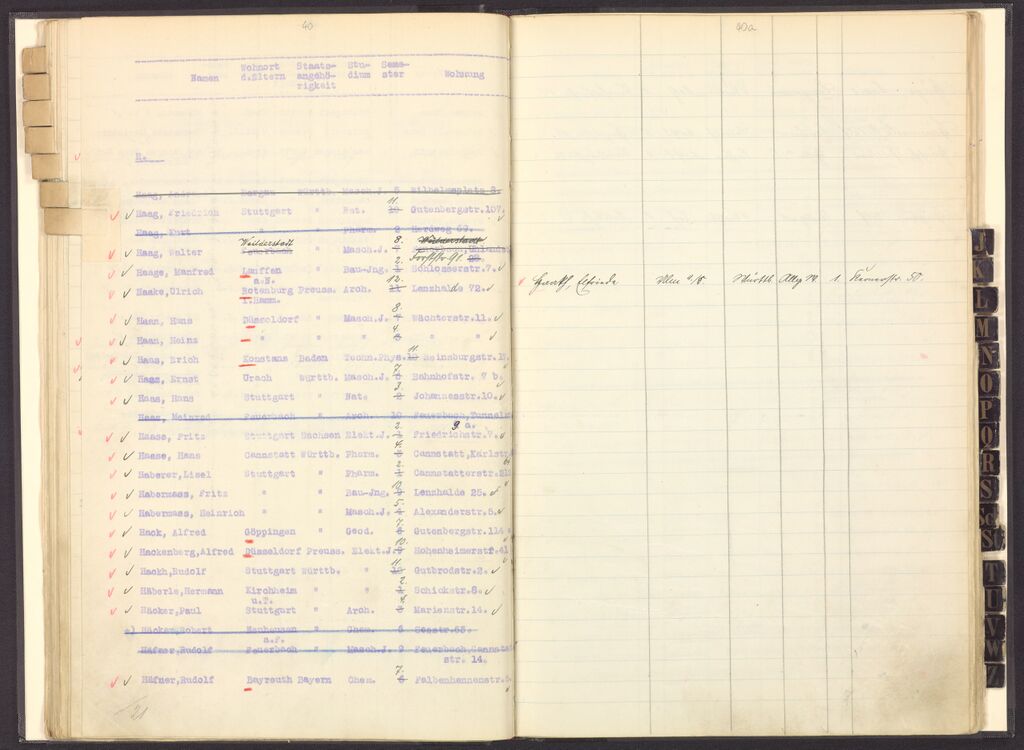 40
Namen Wohnort d.Eltern Staats-angehö-rigkeit Stu-dium Seme-ster Wohnung
H.
Haag, Bergau Württb. Masch.J. 5 Wilhelmsplatz 8.
Haag, Friedrich Stuttgart " Nat. 10 11. Gutenbergstr.107.
Haag, Kurt " " Pharm. 2 Herdweg 69.
Haag, Walter Feuerbach Weilderstadt " Masch.J. 7 8. Weilderstadt
Haage, Manfred Lauffen a.N. " Bau-Jng. 1 2. Schlosserstr.7.
Haake,Ulrich Rotenburg i.Hann. Preuss. Arch. 11 12. Lenzhalde 72.
Haan, Hans Düsseldorf " Masch.J. 7 8. Wächterstr.11.
Haan, Heinz " " " 4. " "
Haas, Erich Konstanz Baden Techn.Phys. 10 11. Reinsburgstr.
Haas, Ernst Urach Württb. Masch.J. 6 7. Bahnhofstr. 7 b.
Haas, Hans Stuttgart " Nat. 2 3. Johannesstr.10.
Haas, Meinrad Feuerbach " Arch. 10 Feuerbach,Tunnelstr
9 a.
Haase, Fritz Stuttgart Sachsen Elekt.J. 1 2. Friedrichstr.7.
Haase, Hans Cannstatt Württb. Pharm. 4. Cannstatt,Karlstr
Haberer,Lisel Stuttgart " Pharm. 1 2. Cannstatterstr.
Habermass, Fritz " " Bau-Jng. 9 10. Lenzhalde 25.
Habermass, Heinrich " " Masch.J. 4 5. Alexanderstr.5.
Hack, Alfred Göppingen " Geod. 6 7. Gutenbergstr.114
Hackenberg,Alfred Düsseldorf Preuss. Elekt.J. 9 10. Hohenheimerstr.41
Hackh,Rudolf Stuttgart Württb. " 10 11. Gutbrodstr.2.
Häberle,Hermann Kirchheim u.T. " " 1 2. Schickstr.8.
Häcker,Paul Stuttgart " Arch. 3 4. Marienstr.14.
Häcker,Robert Neuhausen a.F. " Chem. 6 Seestr.55.
Häfner,Rudolf Feuerbach " Masch.J. 9 Feuerbach,Cannstatt
str. 14.
Häfner,Rudolf Bayreuth Bayern Chem. 6 7. Falbenhennenstr.
21
40a
Elfriede Ulm a/D. Württb. Allg. 1. Kernerstr. 50
J
K
L
M
N
O
P
Q
R
S
Sch
St
T
U
V
W
Z